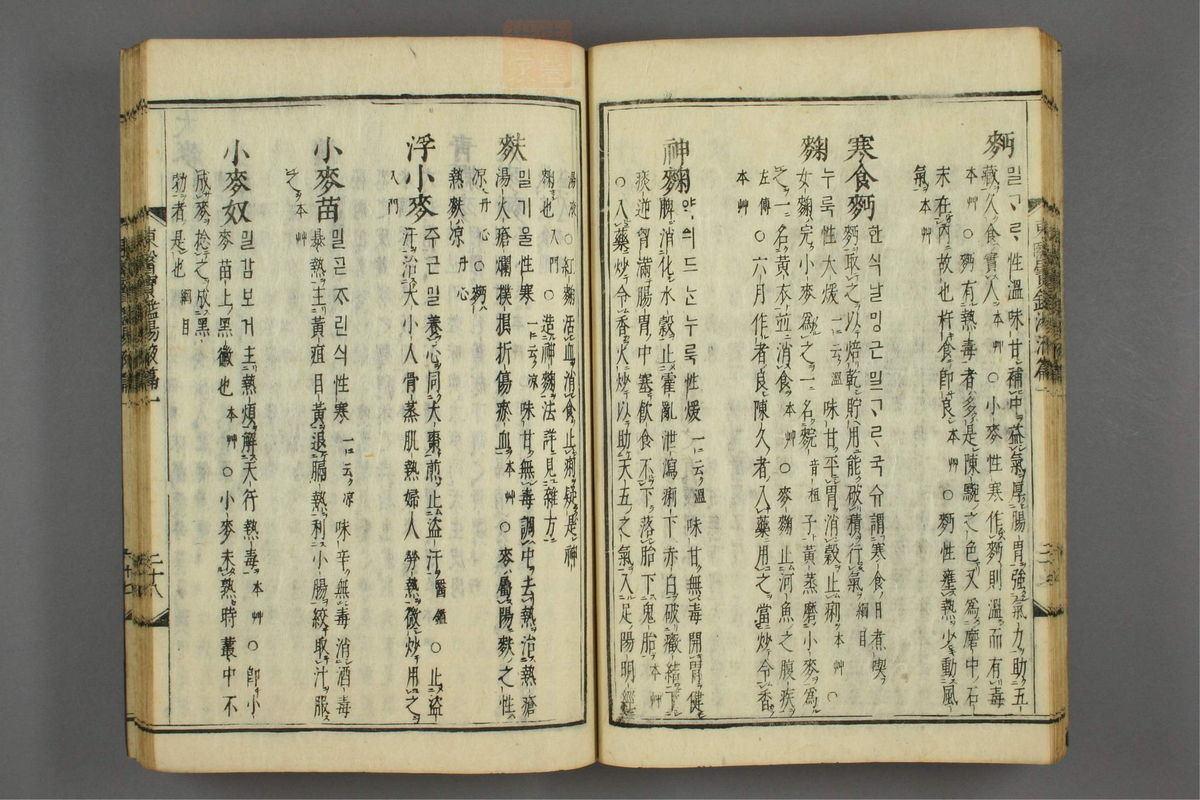 麪
밀ᄀᆞᄅᆞ性溫味甘補中益氣厚腸胃強氣力助五
藏久食實人本艸○小麥性寒作麪則溫而有毒
本艸○麪有熱毒者多是陳黦之色又爲磨中石
末在內故也杵食卽良本艸○麪性壅熱少動風
氣本艸
寒食麪
한식날ᄆᆡᆼ근밀ᄀᆞᄅᆞ국今謂寒食日煮喫
麪取之以焙乾貯用能破積行氣綱目
麴
누룩性大煖一云溫味甘平胃消穀止痢本艸○
女麴完小麥爲之一名䴷音桓子黃蒸磨小麥爲
之一名黃衣並消食本艸○麥麴止河魚之腹疾
左傳○六月作者良陳久者入藥用之當炒令香
本艸
神麴
약의드ᄂᆞᆫ누룩性煖一云溫味甘無毒開胃健
脾消化水穀止霍亂泄瀉痢下赤白破癥結下
痰逆胷滿腸胃中塞飮食不下落胎下鬼胎本艸
○入藥炒令香火炒以助天五之氣入足陽明經
湯液○紅麴活血消食止痢疑是神
麴也入門○造神麴法詳見雜方
麩
밀기울性寒一云涼味甘無毒調中去熱治熱瘡
湯火瘡爛撲損折傷瘀血本艸○麥屬陽麩之性
涼丹心○麪熱麩涼丹心
浮小麥
주근밀養心同大棗煎止盜汗醫鑑○止盜
汗治大小人骨蒸肌熱婦人勞熱微炒用之
入門
小麥苗
밀곧ᄌᆞ린싀性寒一云涼味辛無毒消酒毒
暴熱主黃疸目黃退膈熱利小腸絞取汁服
之本艸
小麥奴
밀감보기主熱煩解天行熱毒本艸○卽小
麥苗上黑黴也本艸○小麥未熟時叢中不
成麥捻之成黑
勃者是也綱目
東醫寶鑑湯液篇一
二十八